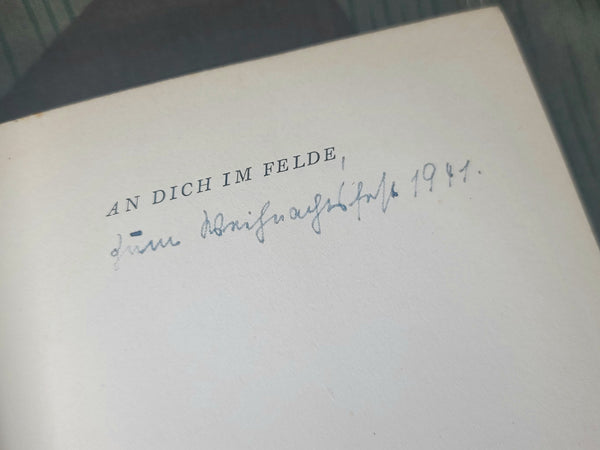 AN DICH IM FELDE,
zum Weihnachtsfest 1941.